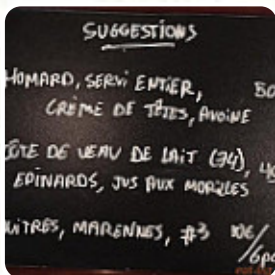 SUGGESTIONS
HOMARD, SERVI ENTIER,
CRÈME DE TÊTES, AVOINE
CÔTE DE VEAU DE LAIT (74),
EPINARDS, JUS AUX MORILLES
HUITRES, MARENNES, #3 10€
/6pc